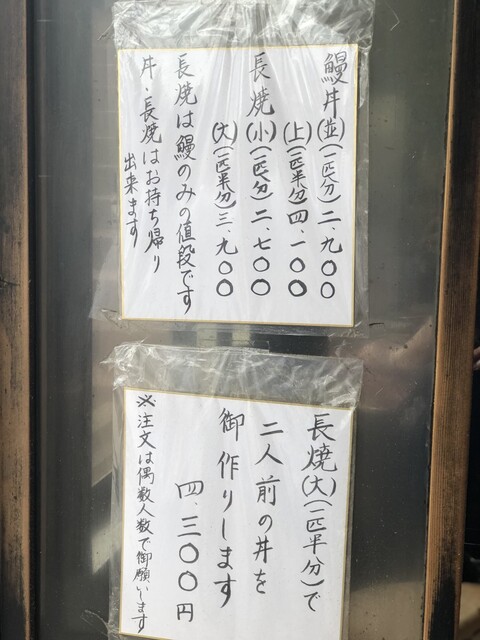 鰻丼(並)(一匹分)二、九〇〇
(上)(一匹半分)四、一〇〇
長焼(小)(一匹分)二、七〇〇
(大)(一匹半分)三、九〇〇
長焼は鰻のみの値段です
丼・長焼はお持ち帰り
出来ます
長焼(大)(一匹半分)で
二人前の丼を
御作りします
四、三〇〇円
※注文は偶数人数で御願いします